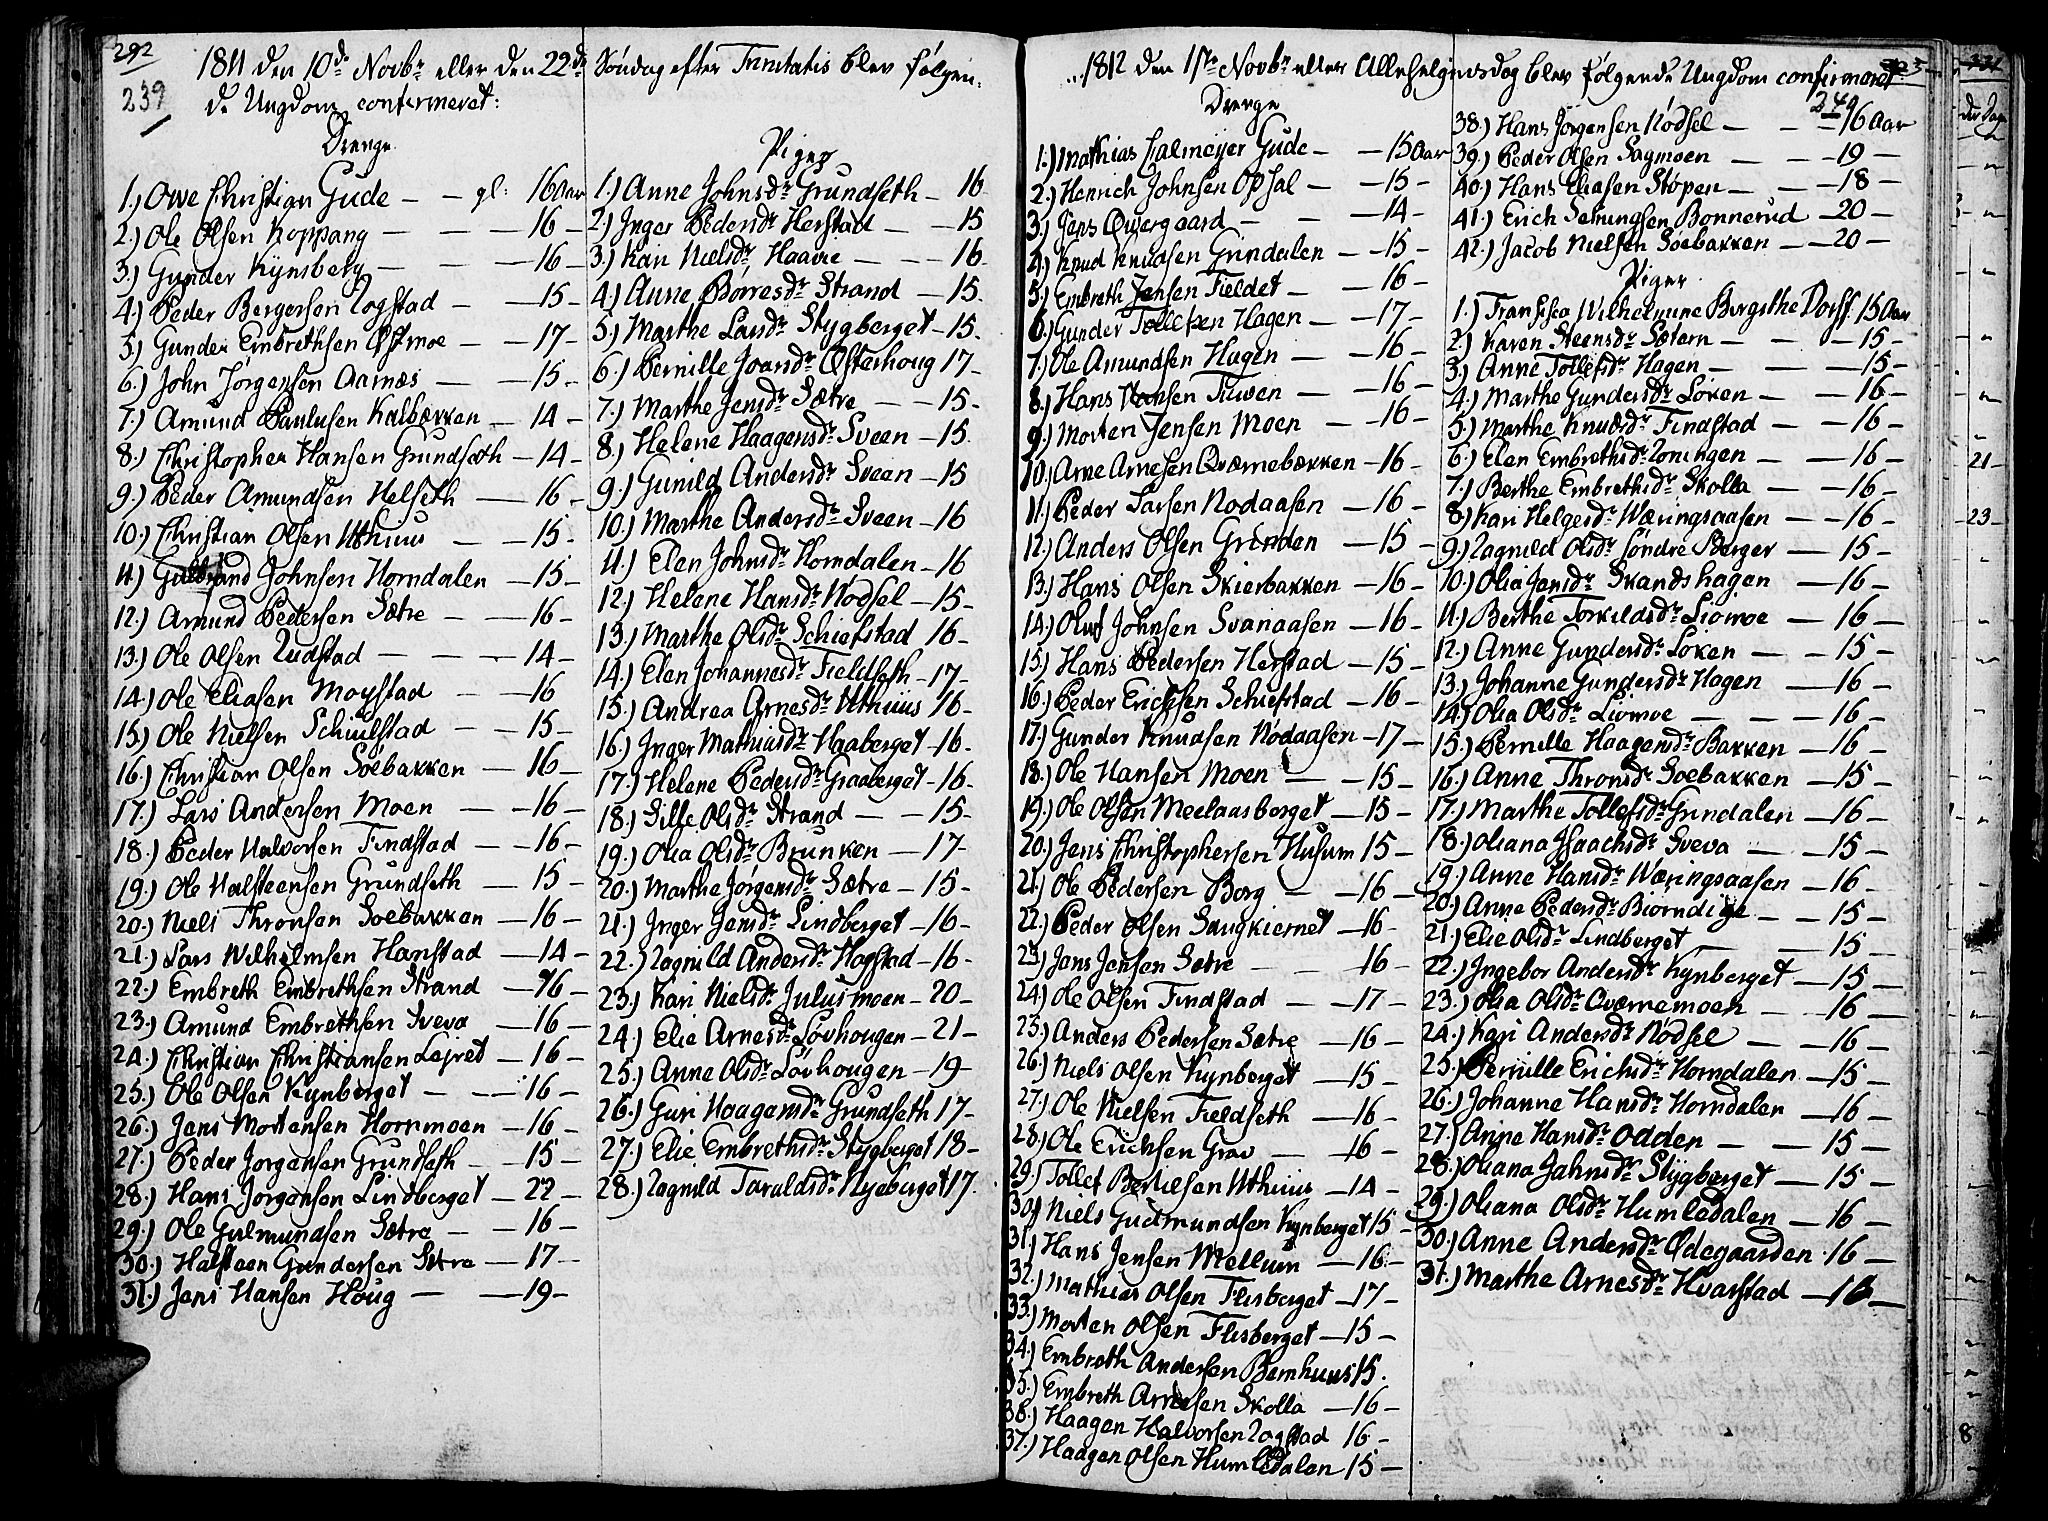 292
239
1811 den 10de Novbr eller den 22de Søndag efter Trinitatis blev følgen-
de Ungdom confirmeret:
Drenge
1.) Owe Christian Gude — — gl: 16 Aar
2.) Ole Olsen Koppang — — — 16 —
3.) Gunder Kynsberg — — — 16 —
4.) Peder Bergersen Rogstad — — 15 —
5.) Gunder Embrethsen Østmoe — 17 —
6.) John Jørgensen Aarnæs — — 15 —
7.) Amund Paulusen Kalbækken — 14 —
8.) Christopher Hansen Grundseth — 14 —
9.) Peder Amundsen Helseth — 16 —
10.) Christian Olsen Uthuus — — 15 —
11.) Gulbrand Johnsen Horndalen — 15 —
12.) Amund Pedersen Sætre — — 16 —
13.) Ole Olsen Rudstad — — — 14 —
14.) Ole Eliasen Moystad — — 16
15.) Ole Nielsen Schiulstad — — 15 —
16.) Christian Olsen Soebakken — 16 —
17.) Lars Andersen Moen — — 16 —
18.) Peder Halvorsen Findstad — — 16 —
19.) Ole Halsteensen Grundseth — 15 —
20.) Niels Thronsen Soebakken — 16 —
21.) Lars Wilhelmsen Hanstad — 14 —
22.) Embreth Embrethsen Strand — 16 —
23.) Amund Embrethsen Sveva — 16 —
24.) Christian Christiansen Lejret — 16 —
25.) Ole Olsen Kynberget — — 16 —
26.) Jens Mortensen Hornmoen — 16 —
27.) Peder Jorgensen Grundseth — 15 —
28.) Hans Jorgensen Lindberget — 22 —
29.) Ole Gulmundsen Sætre — — 16 —
30.) Halsteen Gundersen Sætre — 17 —
31.) Jens Hansen Houg — — 19 —
Piger
1.) Anne Johnsdr Grundseth — 16
2.) Inger Pedersdr Herstad — — 15
3.) Kari Nielsdr Haavie — — — 16
4.) Anne Børresdr Strand — 15
5.) Marthe Larsdr Stygberget — 15
6.) Pernille Joarsdr Østerhoug 17 —
7.) Marthe Jensdr Sætre — — 15 —
8.) Helene Haagensdr Sveen — 15
9.) Gunild Andersdr Sveen — 15
10.) Marthe Andersdr Sveen — 16
11.) Elen Johnsdr Horndalen — 16
12.) Helene Hansdr Nødsel — 15 —
13.) Marthe Olsdr Schiefstad 16 —
14.) Elen Johannesdr Fieldseth — 17 —
15.) Andrea Arnesdr Uthuus 16 —
16.) Inger Mathiasdr Haaberget — 16 —
17.) Helene Pedersdr Graaberget — 16 —
18.) Sille Olsdr Strand — — 15 —
19.) Olia Olsdr Brunken — 17 —
20.) Marthe Jørgensdr Sætre — 15 —
21.) Inger Jensdr Lindberget — 16 —
22.) Ragnild Andersdr Hogstad — 16 —
23.) Kari Nielsdr Julusmoen — 20 —
24.) Elie Arnesdr Løvhougen — 21 —
25.) Anne Olsdr Løvhougen — 19 —
26.) Guri Haagensdr Grundseth 17 —
27.) Elie Embrethsdr Stygberget 18 —
28.) Ragnild Taraldsdr Nyeberget 17.
1812 den 1ste Novbr eller Allehelgensdag blev følgende Ungdom confirmeret
240
Drenge
1.) Mathias Calmeyer Gude — — 15 Aar
2.) Henrich Johnsen Opsal — — 15 —
3.) Jens Qvergaard — — — 14 —
4.) Knud Knudsen Grindalen — 15 —
5.) Embreth Jensen Fieldet — — 16 —
6.) Gunder Tollefsen Hagen — — 17 —
7.) Ole Amundsen Hagen — — 16 —
8.) Hans Hansen Tuven — — 16 —
9.) Morten Jensen Moen — — 16 —
10.) Arne Arnesen Qværnebækken — 16 —
11.) Peder Larsen Nodaasen — 16 —
12.) Anders Olsen Grinden — 15 —
13.) Hans Olsen Skierbakken — 16 —
14.) Oluf Johnsen Svanaasen — 16 —
15.) Hans Pedersen Herstad — 15 —
16.) Peder Erichsen Schiefstad — 16 —
17.) Gunder Knudsen Nødaasen — 17 —
18.) Ole Hansen Moen — — 15 —
19.) Ole Olsen Meelaasberget — 15 —
20.) Jens Christophersen Husum 15 —
21.) Ole Pedersen Borg — — 16 —
22.) Peder Olsen Saugkiernet — 16 —
23.) Jens Jensen Sætre — — 16 —
24.) Ole Olsen Findstad — — 17 —
25.) Anders Pedersen Sætre — 16 —
26.) Niels Olsen Kynberget — 15 —
27.) Ole Nielsen Fieldseth — 16 —
28.) Ole Erichsen Grav — — 16 —
29.) Tollef Bertelsen Uthuus — 14 —
30.) Niels Gudmundsen Kynberget 15 —
31.) Hans Jensen Mellum — 16 —
32.) Mathias Olsen Flisberget — 17 —
33.) Morten Olsen Flisberget — 15 —
34.) Embreth Andersen Bernhuus 15.
35.) Embreth Arnesen Skolla — 16 —
36.) Haagen Halvorsen Rogstad 16 —
37.) Haagen Olsen Humledalen 15 —
38.) Hans Jorgensen Nødsel — — 16 Aar
39.) Peder Olsen Sagmoen — — 19 —
40.) Hans Eliasen Støpen — — 18 —
41.) Erich Semingsen Bonnerud — 20 —
42.) Jacob Nielsen Soebakken — 20 —
Piger
1.) Fransisca Wilhelmine Birgithe Dorff 15 Aar
2.) Karen Steensdr Sætern — — 15 —
3.) Anne Tollefsdr Hagen — — 15 —
4.) Marthe Gundersdr Løken — — 16 —
5.) Marthe Knudsdr Findstad — 16 —
6.) Elen Embrethsdr Löningen — 16 —
7.) Berthe Embrethsdr Skolla — — 16 —
8.) Kari Helgesdr Wæringsaasen — — 16 —
9.) Ragnild Olsdr Søndre Berger — 15 —
10.) Olia Jensdr Skandshagen — 16 —
11.) Berthe Torkildsdr Liomoe — 16 —
12.) Anne Gundersdr Løken — — 15 —
13.) Johanne Gundersdr Hagen — 16 —
14.) Olia Olsdr Liomoe — — — 16 —
15.) Pernille Haagensdr Bakken — 16 —
16.) Anne Thronsdr Soebakken — 15 —
17.) Marthe Tollefsdr Grindalen — 16 —
18.) Oliana Isaachsdr Sveva — — 15 —
19.) Anne Hansdr Wæringsaasen — 16 —
20.) Anne Pedersdr Biørndige — — 15 —
21.) Elie Olsdr Lindberget — — 15 —
22.) Ingebor Andersdr Kynberget — 15 —
23.) Olia Olsdr Qværnemoen — 16 —
24.) Kari Andersdr Nødsel — — 16 —
25.) Pernille Erichsdr Horndalen — 15 —
26.) Johanne Hansdr Horndalen — 16 —
27.) Anne Hansdr Odden — — 15 —
28.) Oliana Jahnsdr Stygberget — 15 —
29.) Oliana Olsdr Humledalen — 16 —
30.) Anne Andersdr Ødegaarden 16 —
31.) Marthe Arnesdr Hvarstad — 16 —
21 —
23 —
8